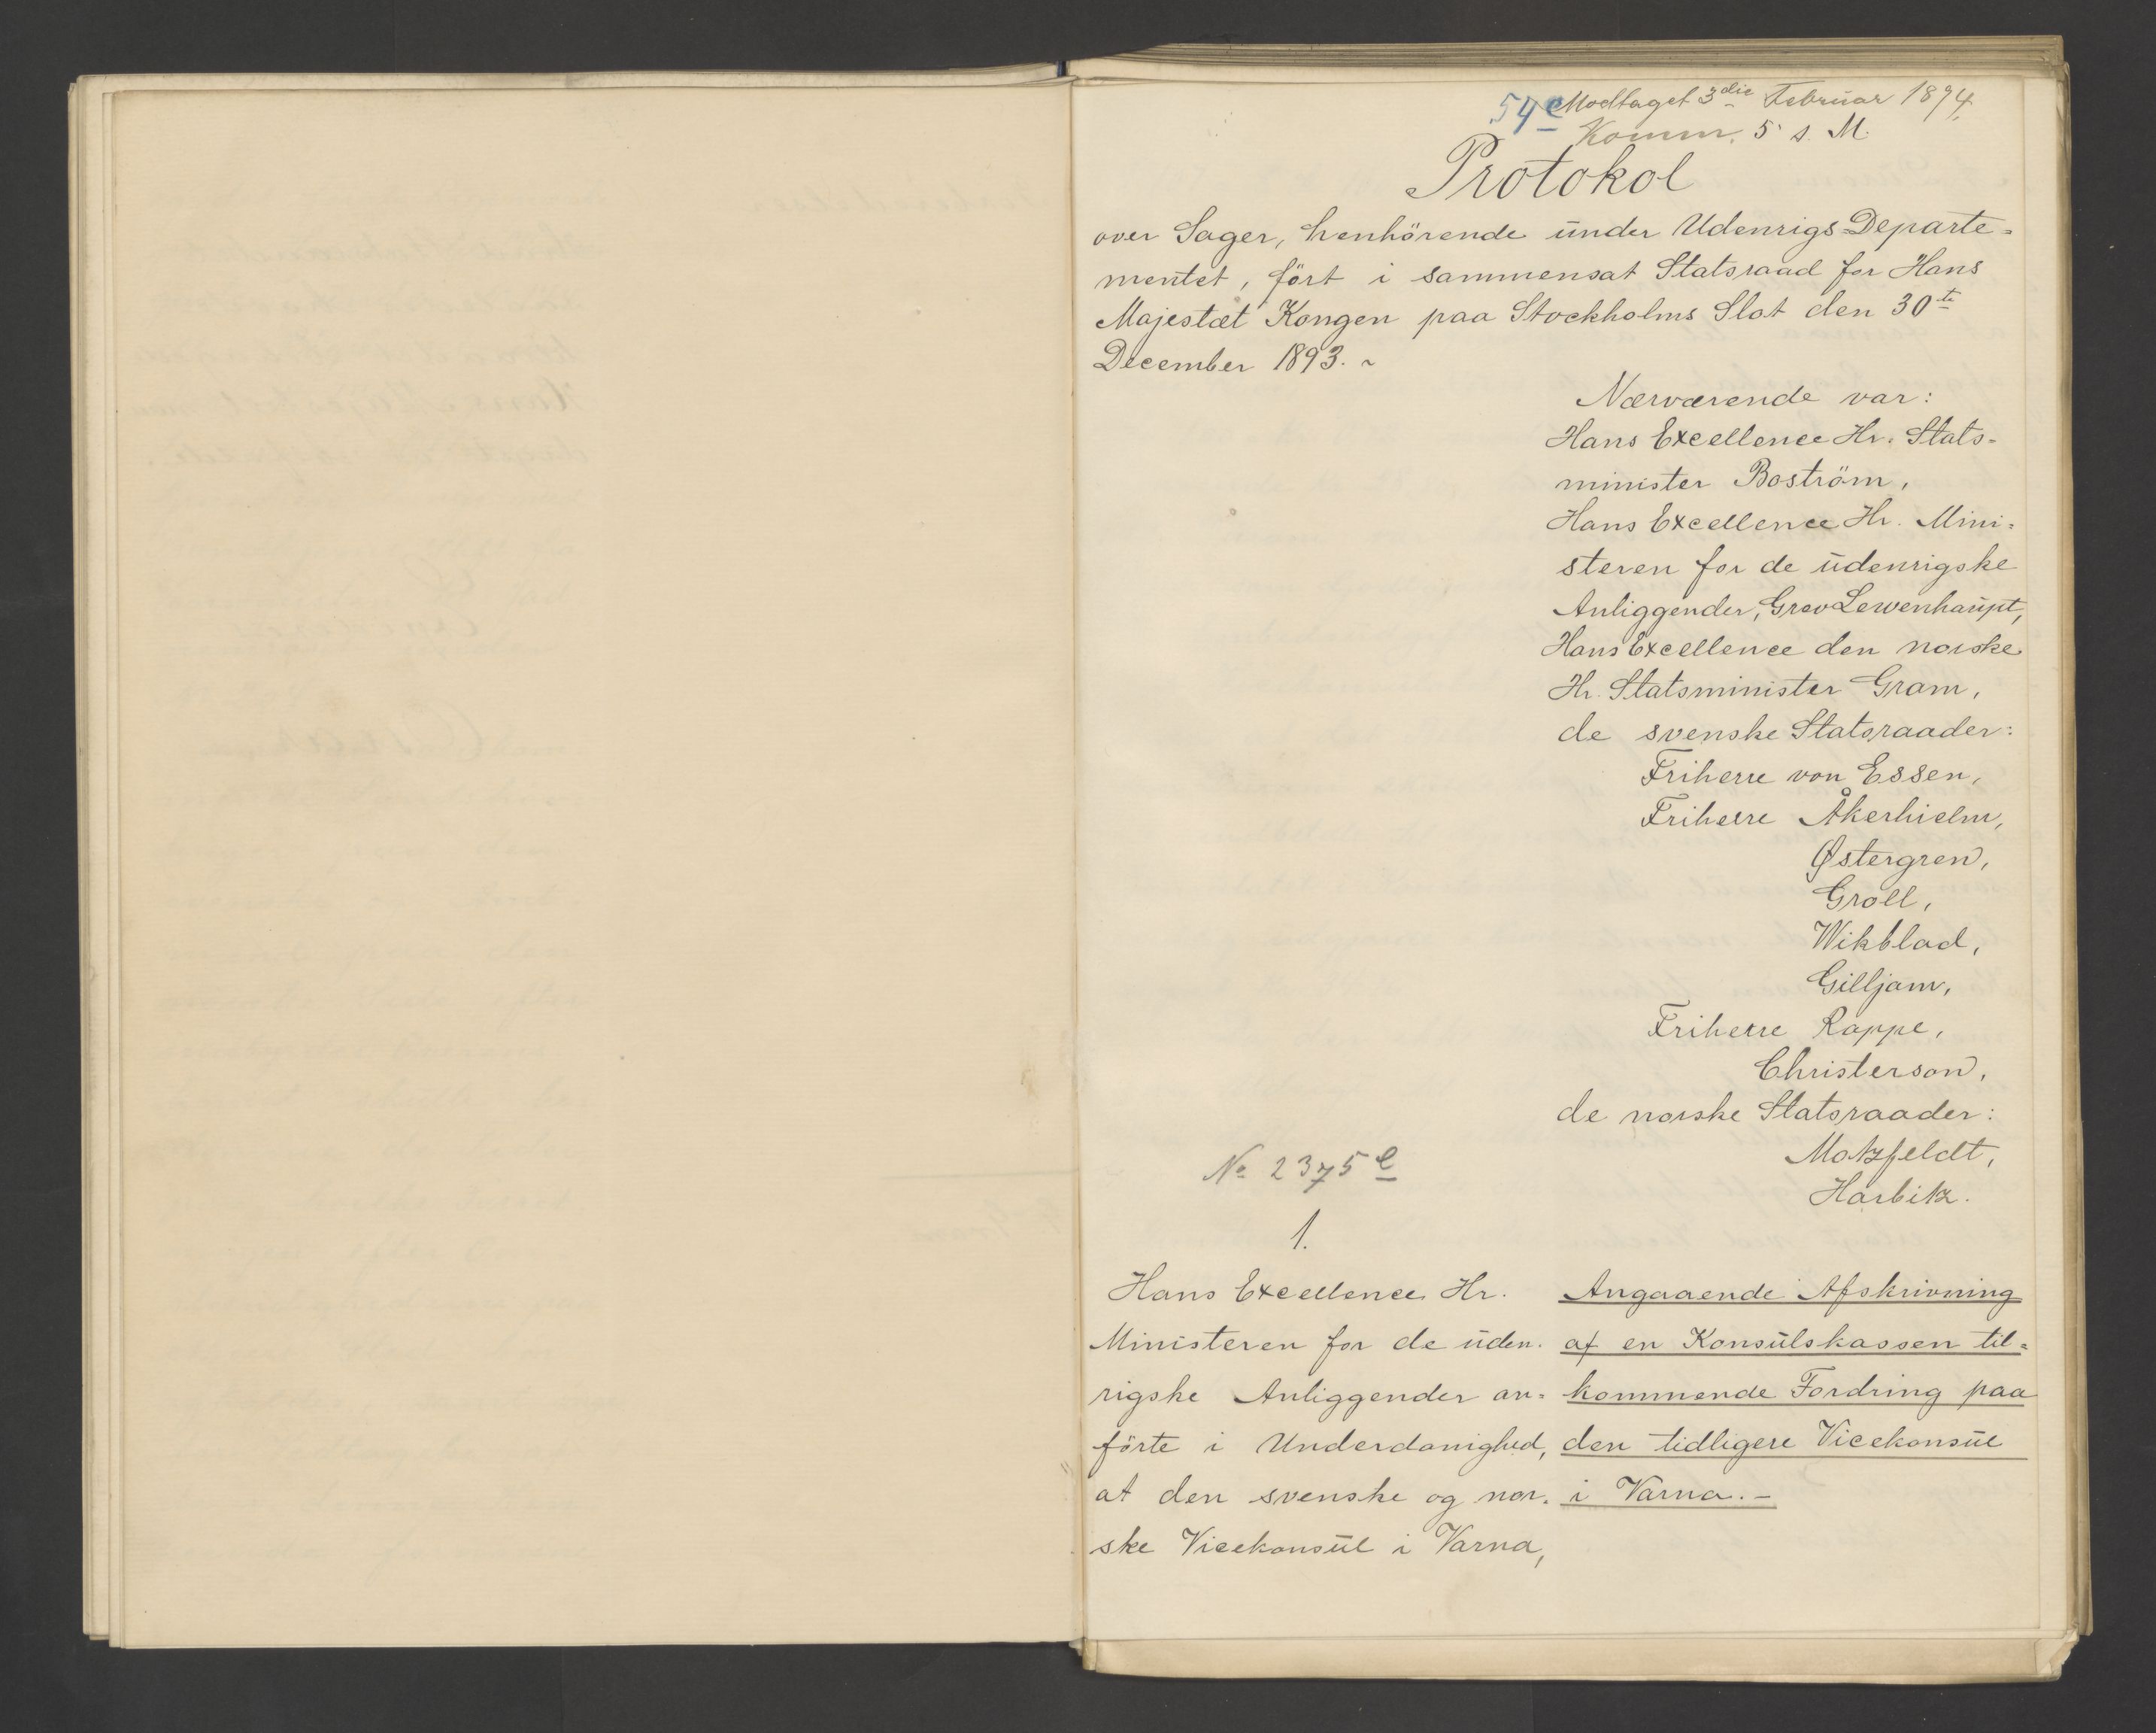 54c Modtaget 3die Februar 1894.
Komm. 5 s. M.
Protokol
over Sager, henhörende under Udenrigs Departe=
mentet, fört i sammensat Statsraad for Hans
Majestæt Kongen paa Stockholms Slot den 30te
December 1893. ~
Nærværende var:
Hans Excellence Hr. Stats-
minister Boström,
Hans Excellence Hr. Mini=
steren for de udenrigske
Anliggender, Grev Lewenhaupt,
Hans Excellence den norske
Hr. Statsminister Gram,
de svenske Statsraader:
Friherre von Essen,
Friherre Åkerhielm,
Østergren,
Groll,
Wikblad,
Gilljam,
Friherre Rappe,
Christerson,
de norske Statsraader:
Motzfeldt,
Harbitz.
No 2375 C
1.
Angaaende Afskrivning
af en Konsulskassen til=
kommende Fordring paa
den tidligere Vicekonsul
i Varna. -
Hans Excellence Hr.
Ministeren for de uden-
rigske Anliggender an=
förte i Underdanighed,
at den svenske og nor-
ske Vicekonsul i Varna,